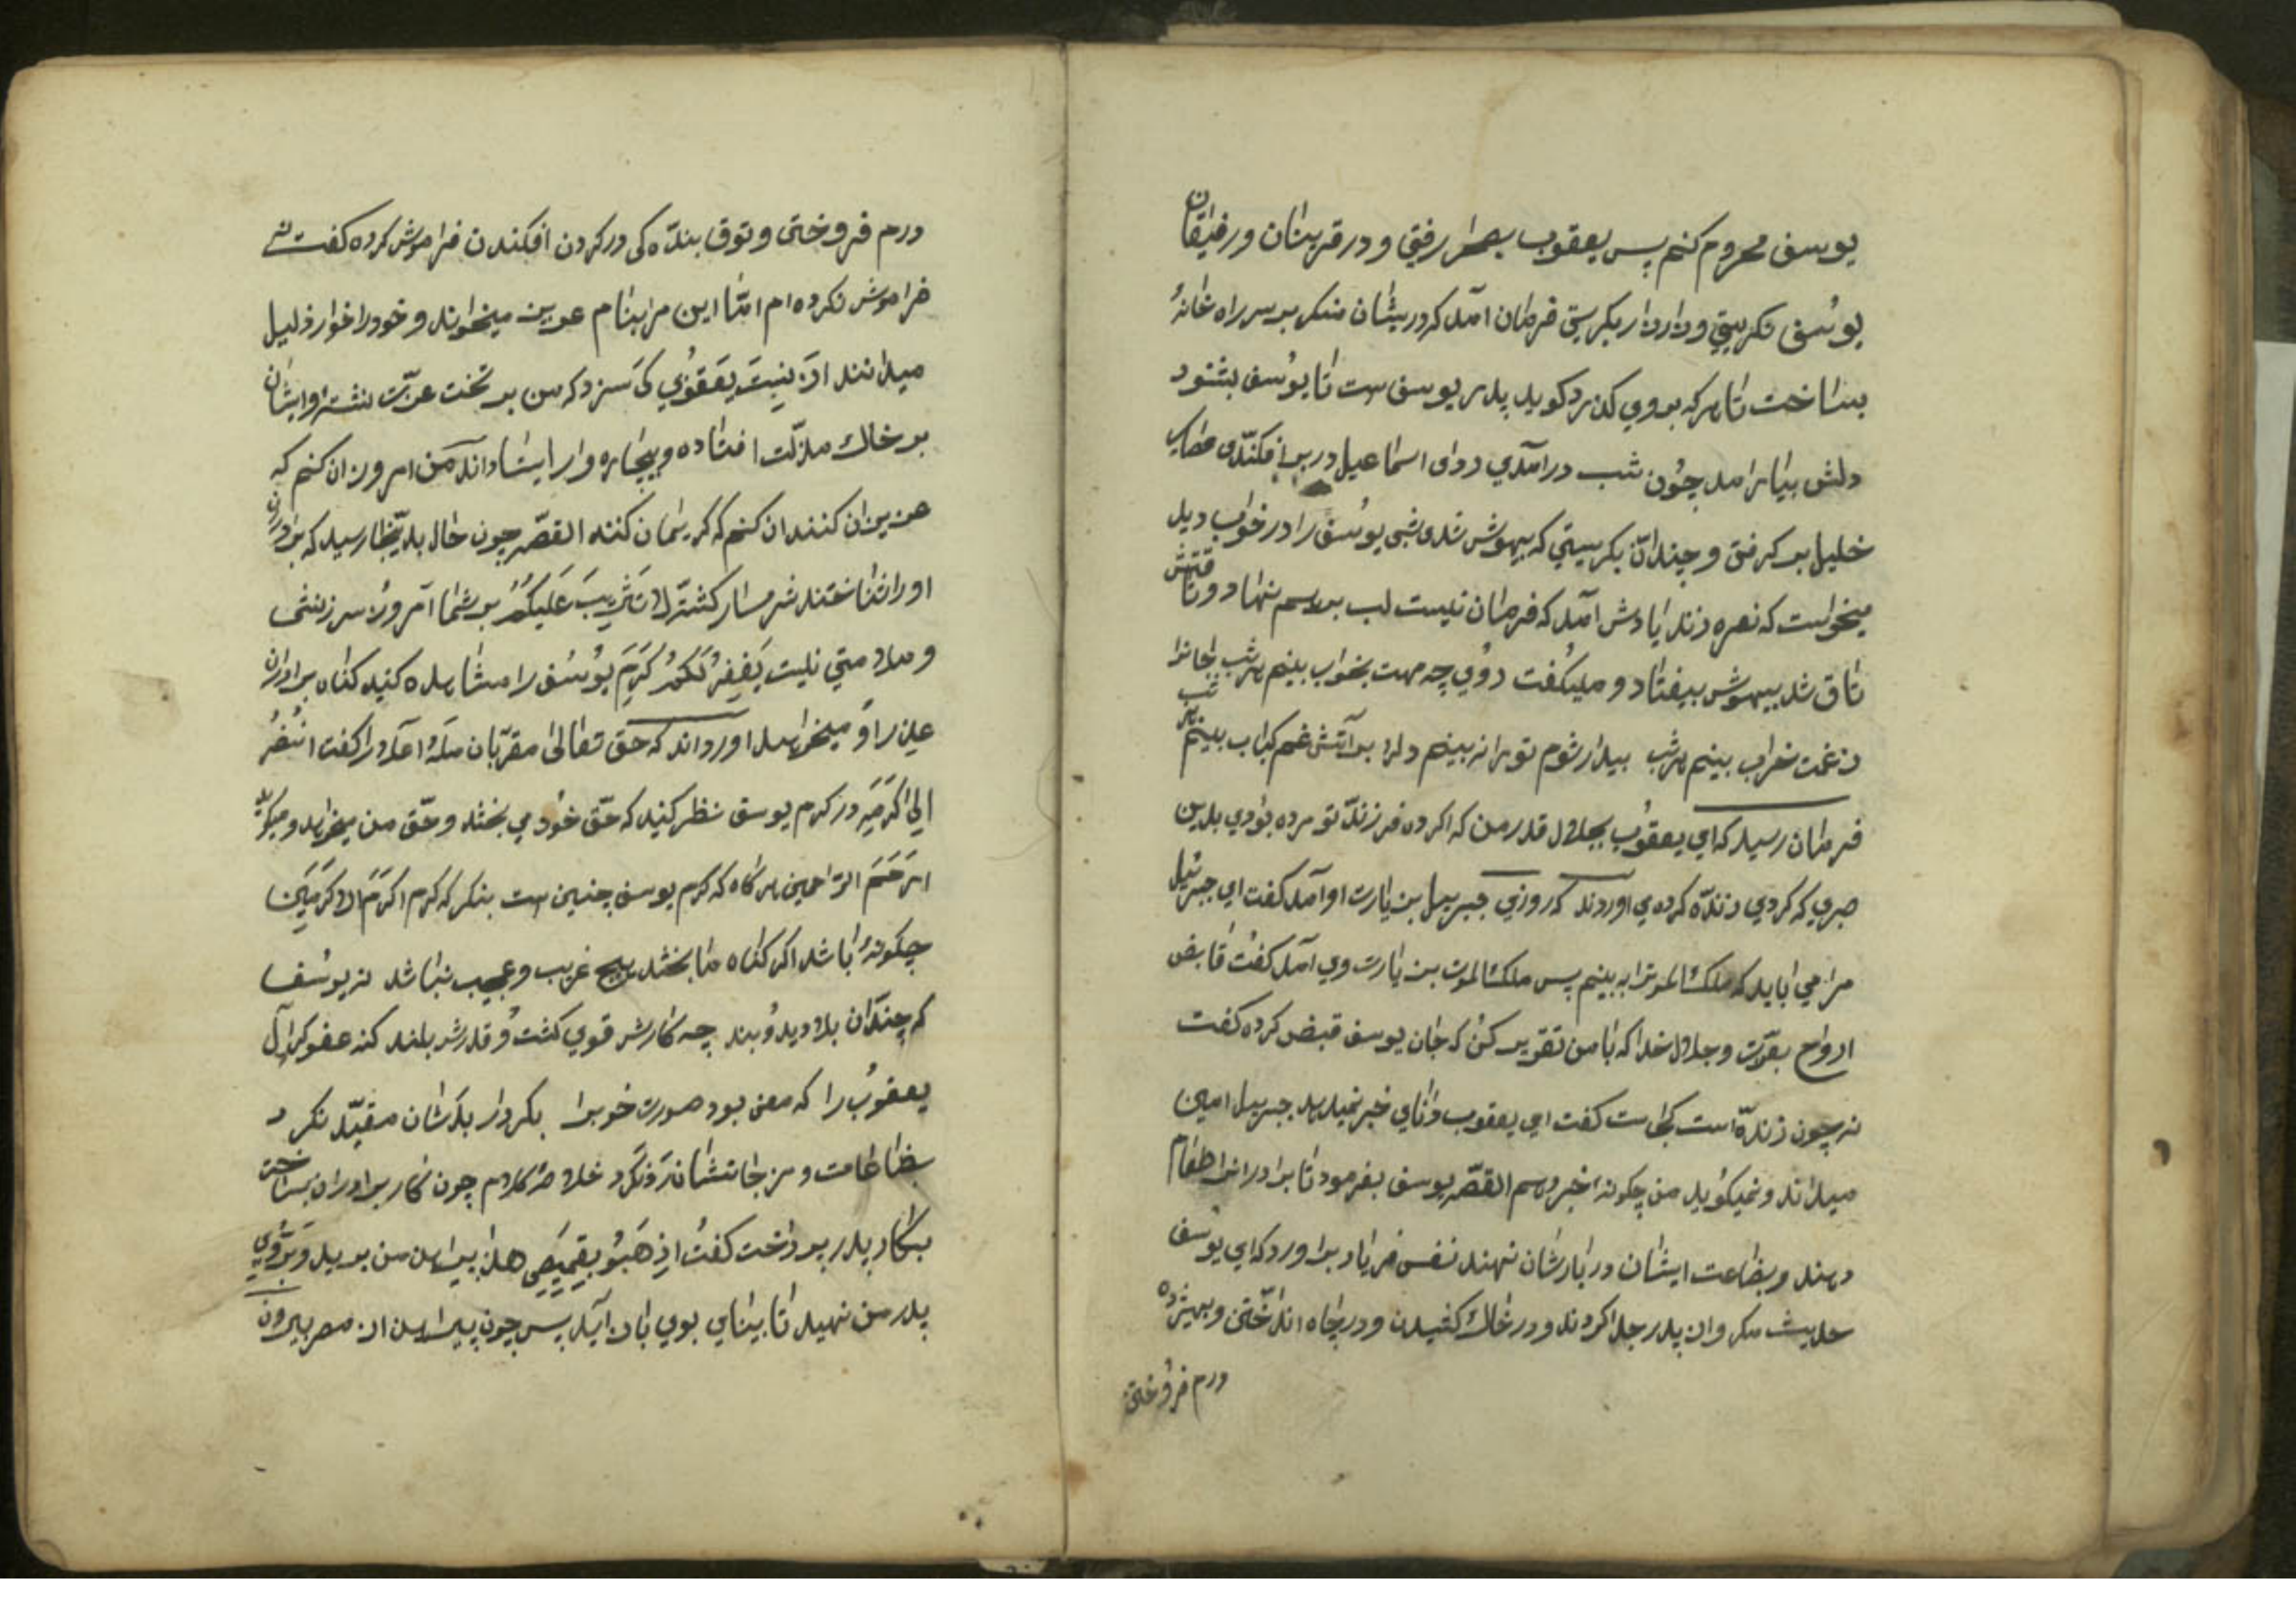 یوسف محروم کنم پس یعقوب بصحرا رفتی و در قرینان و رفیقان
یوسف نکریستی و زار زار بکریستی فرمان امد که دریشان منکر بر سر راه خانهٔ
بساخت تا هر که بروی کذرد کوید پدر یوسف ست تا یوسف بشنود
دلش بیارامد چون شب درامدی ردای اسماعیل در بر افکندی عصای
خلیل بر کرفتی و چندان بکریستی که بیهوش شدی شبی یوسف را در خواب دید
میخواست که نعره زند یادش آمد که فرمان نیست لب برهم نهاد و تا قتش
تاق شد بیهوش بیفتاد و میکفت روی چه مهت بخواب بینم هر شب
ز غمت خراب بینم هر شب بیدار شوم تو را نه بینم دلرا بر آتش غم کباب بینم هر شب
فرمان رسید که ای یعقوب بجلال قدر من که اکر ده فرزند تو مرده بودی بدین
صبری که کردی زنده کرده می اوردند که روزی جبریل بزیارت او آمد کفت ای جبرئیل
مرا می باید که ملک الموترا به بینم پس ملک الموت بزیارت وی آمد کفت قابض
ارواح بعزت و جلال خدا که با من تقریر کن که جان یوسف قبض کرده کفت
نه چون زنده است کجاست کفت ای یعقوب دانای خبر نمیدهد جبریل امین
میداند و نمیکوید من چکونه خبر دهم القصه یوسف بفرمود تا برادرانرا طعام
دهند و بضاعت ایشان در بارشان نهند نفس فریاد برآورد که ای یوسف
حدیث مکر وان پدر جدا کردند و در خاک کشیدن و در چاه انداختن و بهیژده
درم فروختی
درم فروختی و توق بنده کی در کردن افکندن فراموش کرده کفت نی
فراموش نکرده ام امّا این مرا بنام عزیز میخوانند و خود را خوار ذلیل
میدانند از بنیت یعقوبی کی سزد که من بر تخت عزت نشسته و ایشان
بر خاک مذلت افتاده و بیچاره وار ایستاده اند من امروز ان کنم که
عزیزان کنند ان کنم که کریمان کنند القصه چون حال بدینجا رسید که برادران
او را شناختند شرمسار کشتند لا تثریب علیکم بر شما امروز سرزنشی
و ملامتی نیست یغفر لکم کرم یوسف را مشاهده کنید کناه برادران
عذر او میخواهد اورداند که حق تعالی مقربان ملاء اعلا را کفت انظر
الی اکرمیه در کرم یوسف نظر کنید که حق خود می بخشد و حق من میخواهد و میکوید
ارحم الراحمین هر کاه که کرم یوسف چنین ست بنکر که کرم اکرم الاکرمین
چکونه باشد اکر کناه ما بخشد هیچ غریب و عجیب نباشد نه یوسف
که چندان بلا دید و بند چه کارش قوی کشت و قدرش بلند کنه عفو کرد آل
یعقوب را که معنی بود صورت خوبرا بکردار بدشان مقید نکرد
بضاعات مزجاتشان رد نکرد خلاصه کلام چون کار برادران بساخت
بکار پدر پرداخت کفت اذهبو بقمیصی هذا پیراهن من برید و بر روی
پدر من نهید تا بینای بوی باز آید پس چون پیراهن از مصر بیرون